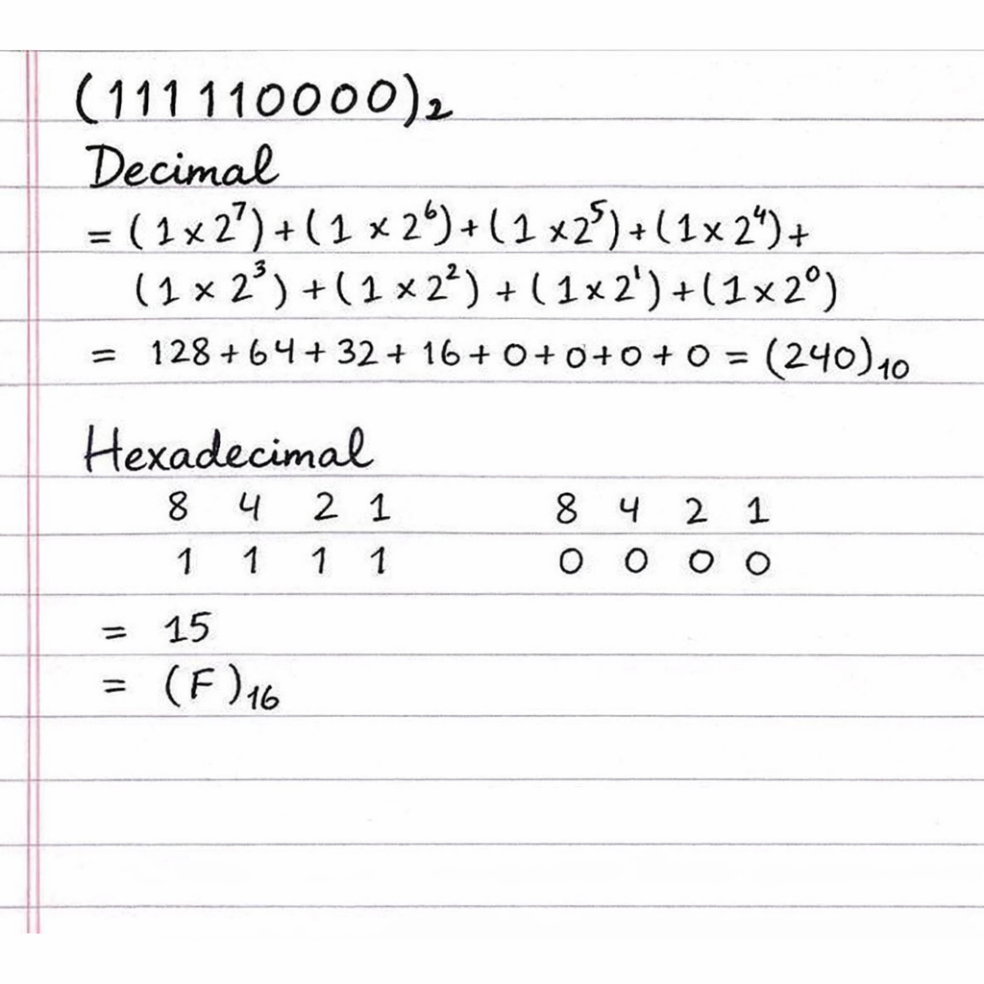 (111 110000)₂
Decimal
= (1 x 2⁷) + (1 x 2⁶) + (1 x 2⁵) + (1 x 2⁴) +
(1 x 2³) + (1 x 2²) + (1 x 2¹) + (1 x 2⁰)
= 128 + 64 + 32 + 16 + 0 + 0 + 0 + 0 = (240)₁₀
Hexadecimal
8 4 2 1 8 4 2 1
1 1 1 1 0 0 0 0
= 15
= (F)₁₆